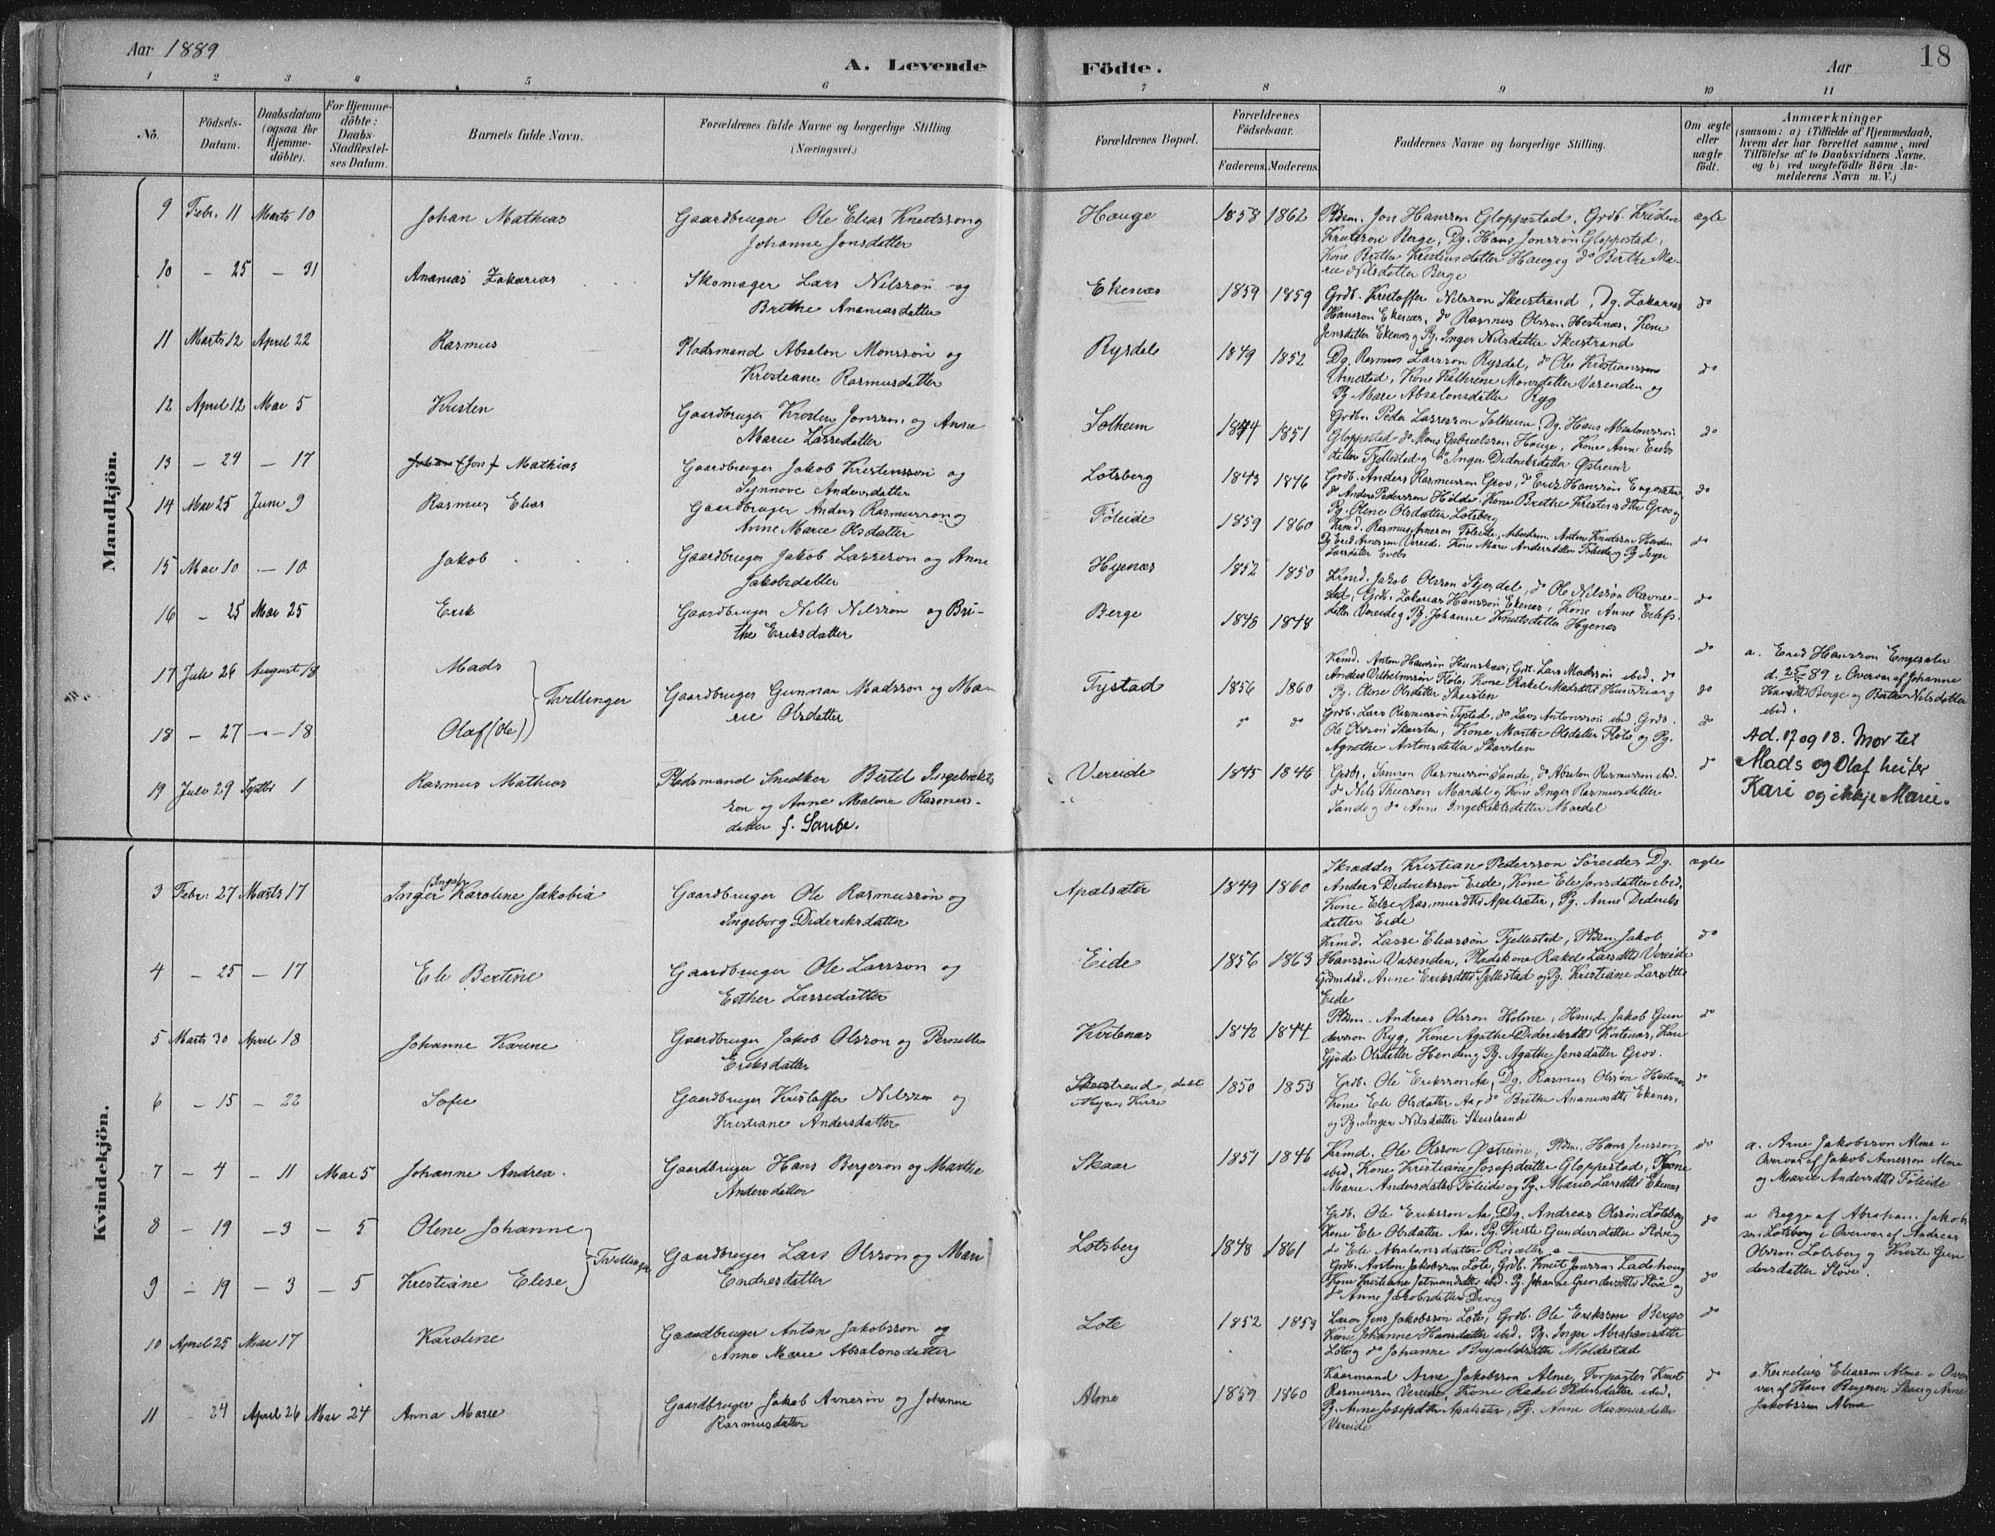 Aar 1889
A. Levende Födte.
Aar
18
1 2 3 4 5 6 7 8 9 10 11
No.
Födsels-Datum.
Daabsdatum (ogsaa for Hjemme-döbte).
For Hjemme-döbte: Daabs-Stadfæstel-ses Datum.
Barnets fulde Navn.
Forældrenes fulde Navne og borgerlige Stilling
(Næringsvei.)
Forældrenes Bopæl.
Forældrenes Födselsaar.
Faderens. Moderens.
Faddernes Navne og borgerlige Stilling.
Om ægte eller uægte födt.
Anmærkninger
(saasom: a) i Tilfælde af Hjemmedaab, hvem der har forrettet samme, med Tilföielse af to Daabsvidners Navne. og b) ved uægtefödte Börn An-melderens Navn m. V.)
Mandkjön.
9 Febr. 11 Marts 10 Johan Mathias Gaardbruger Ole Elias Knutsson og
Johanne Jonsdatter
Hauge 1858 1862 Pldsm. Jon Hansson Gloppestad, Grdb. Kristen
Knutsson Berge, Dg. Hans Jonsson Gloppestad,
Kone Brithe Kristensdatter Hauge og do Birthe Ma-
rie Nilsdatter Berge
ægte
10 - 25 - 31 Ananias Zakarias Skomager Lars Nilsson og
Brithe Ananiasdatter
Ekenæs 1859 1859 Grdb. Kristoffer Nilsson Skeistrand, Dg. Zakarias
Hansson Ekenæs, do Rasmus Olsson Hestenæs, Kone
Jensdatter Ekenes og Pg. Inger Nilsdatter Skeistrand
do
11 Marts 12 April 22 Rasmus Pladsmand Absalon Monsson og
Kristiane Rasmusdatter
Rysdale 1849 1852 Dg. Rasmus Larsson Rysdal, do Ole Kristiansson
Arnestad, Kone Kathrine Monsdatter Vasenden og
Pg Marie Absalonsdatter Ryg
do
12 April 12 Mai 5 Kristen Gaardbruger Kristen Jonsson og Anne
Marie Lassedatter
Solheim 1844 1851 Grdb. Peder Lassesson Solheim, Dg. Hans Absalonsson
Gloppestad do Mons Gabrielsson Hauge, Kone Anne Eriks
datter Fjellestad og do Inger Dideriksdatter Østreim
do
13 - 29 - 17 Johan (Jon) Mathias Gaardbruger Jakob Kristensson og
Synnove Andersdatter
Lotsberg 1843 1846 Grdb. Anders Rasmusson Grov, do Erik Hansson Engesæter,
do Anders Pedersson Hilde, Kone Brithe Kristensdtr Grov og
Pg. Olene Olsdatter Lotsberg
do
14 Mai 25 Juni 9 Rasmus Elias Gaardbruger Anders Rasmusson og
Anne Marie Olsdatter
Föleide 1859 1860 Krmd. Rasmus Arnesson Föleide, Arbeidsm. Anton Knudsson Henden
Pg Erik Arnesson Vereide, Kone Marie Andersdatter Föleide og Pg Inger
Larsdatter Evebø
do
15 Mai 10 - 10 Jakob Gaardbruger Jakob Lassesson og Anne
Jakobsdatter
Hyenæs 1852 1850 Krmd. Jakob Olsson Skjerdal, do Ole Nilsson Ravne-
stad, Grdb. Zakarias Hansson Ekenes, Kone Anne Eilefs-
datter Vereide og Pg. Johanne Knutsdatter Hyenes
do
16 - 25 Mai 25 Erik Gaardbruger Nils Nilsson og Bri-
the Eriksdatter
Berge 1848 1848
do
a. Erik Hansson Engesæter
d. 25/5 89 i Overvær af Johanne
Hansdtr Berge og Brithe Nilsdatter
ibid.
17 Juli 26 August 18 Mads
Tvillinger
Gaardbruger Gunnar Madsson og Ma-
rie Olsdatter
Tystad 1856 1860 Krmd. Anton Hansson Hunskaar, Grdb. Lars Madsson ibid, do
Anders Vilhelmsson Flote, Kone Rakel Madsdtr Hunskaar og
Pg. Olene Olsdatter Skarsten
do
18 - 27 - 18 Olaf (Ole)
do do Grdb. Lars Rasmusson Tystad, do Lars Antonsson ibid. Grdb.
Ole Olsson Skarsten, Kone Marthe Olsdatter Flote og Pg.
Agnethe Antonsdatter Skarsten
do
Ad. 17 og 18. Mor til
Mads og Olaf heiter
Kari og ikkje Marie.
19 Juli 29 Septbr 1 Rasmus Mathias Pladsmand Snedker Bertel Ingebrikts
son og Anne Malene Rasmus-
datter f. Sande.
Vereide 1845 1846 Grdb. Samson Rasmusson Sande, do Absalon Rasmusson ibid.
do Nils Mardal og Kone Inger Rasmusdatter
Sande og do Anne Ingebriktsdatter Mardal
do
Kvindekjön.
3 Febr. 27 Marts 17 Inger (Inga) Karoline Jakobia Gaardbruger Ole Rasmusson og
Ingeborg Dideriksdatter
Apalsæter 1849 1860 Skrædder Kristian Pedersson Söreide, Dg.
Anders Dideriksson Eide, Kone Eli Jonsdatter ibid,
Kone Else Rasmusdtr Apalsæter, Pg. Anne Dideriks
datter Eide
ægte
4 - 25 - 17 Eli Bertine Gaardbruger Ole Larsson og
Esther Lassedatter
Eide 1856 1863 Krmd. Lasse Eliasson Fjellestad, Pldsm. Jakob
Hansson Vasenden, Pladskone Rakel Larsdtr Vereide
Grdmdsd. Anne Eriksdtr Fjellestad og Pg. Kristiane Larsdtr
Eide
do
5 Marts 30 April 18 Johanne Karine Gaardbruger Jakob Olsson og Pernille
Eriksdatter
Kvitenæs 1842 1844 Pldsm. Andreas Olsson Holme, Hmd. Jakob Gun
dersson Ryg, Kone Agathe Dideriksdtr Kvitenæs, Kone
Gjöde Olsdatter Henden og Pg. Agathe Jensdatter Grov.
do
6 - 15 - 22 Sofie Gaardbruger Kristoffer Nilsson og
Kristiane Andersdatter
Skeistrand, döbt
Hyens Kirke
1850 1853 Grdb. Ole Eriksson Aa, Dg. Rasmus Olsson Hestenæs
Kone Eli Olsdatter Aa, do Brithe Ananiasdtr Ekenes,
og Pg. Inger Nilsdatter Skeistrand
do
7 - 4 - 11 Mai 5 Johanne Andrea. Gaardbruger Hans Bergeson og Marthe
Andersdatter
Skaar 1851 1846 Krmd. Ole Olsson Østreim, Pldsm. Hans Jensson
ibid, Kone Kristiane Josefsdatter Gloppestad, Kone
Marie Andersdatter Föleide og Pg. Marie Larsdtr Ekenæs
do
a. Arne Jakobsson Alme i
Overvær af Jakob Arnesson Alme
og Marie Andersdtr Föleide
8 - 19 - 3 - 5 Olene Johanne
Tvillinger
Gaardbruger Lars Olsson og Mari
Endresdatter
Lotsberg 1848 1861 Grdb. Ole Eriksson Aa, Dg. Andreas Olsson Lotsberg
Kone Eli Olsdatter Aa, Pg. Kirste Gundersdatter Störe og
do Eli Absalonsdatter Rosæter
do
a Begge af Abraham Jakob
son Lotsberg i Overvær af Andreas
Olsson Lotsberg og Kirste Gun
dersdatter Störe.
9 - 19 - 3 - 5 Kristiane Elise
Grdb. Anton Jakobsson Lote, Grdb. Knut Jonsson Ladehoug
Kone Kristiane Jetmundsdtr ibid. Pg. Johanne Gundersdtr Störe og
do Anne Jakobsdatter Devig
do
10 April 25 Mai 17 Karoline Gaardbruger Anton Jakobsson og
Anne Marie Absalonsdatter
Lote 1852 1853 Lærer Jens Jakobsson Lote, Grdb. Ole Eriksson Berge
Kone Johanne Hansdatter ibid. Pg. Inger Abrahamsdtr
Lote og do Johanne Moldestad
do
11 - 24 April 26 Mai 24 Anna Marie Gaardbruger Jakob Arneson og Johanne
Rasmusdatter
Alme 1859 1860 Kaarmand Arne Jakobsson Alme, Forpagter Knut
Rasmusson Vereide, Kone Rakel Pedersdatter ibid.
Pg. Anne Josefsdtr Apalsæter, Pg. Anne Rasmusdatter
Vereide
do
a. Kornelius Eliasson Alme i Over
vær af Hans Bergeson Skaar og Arne
Jakobsson Alme